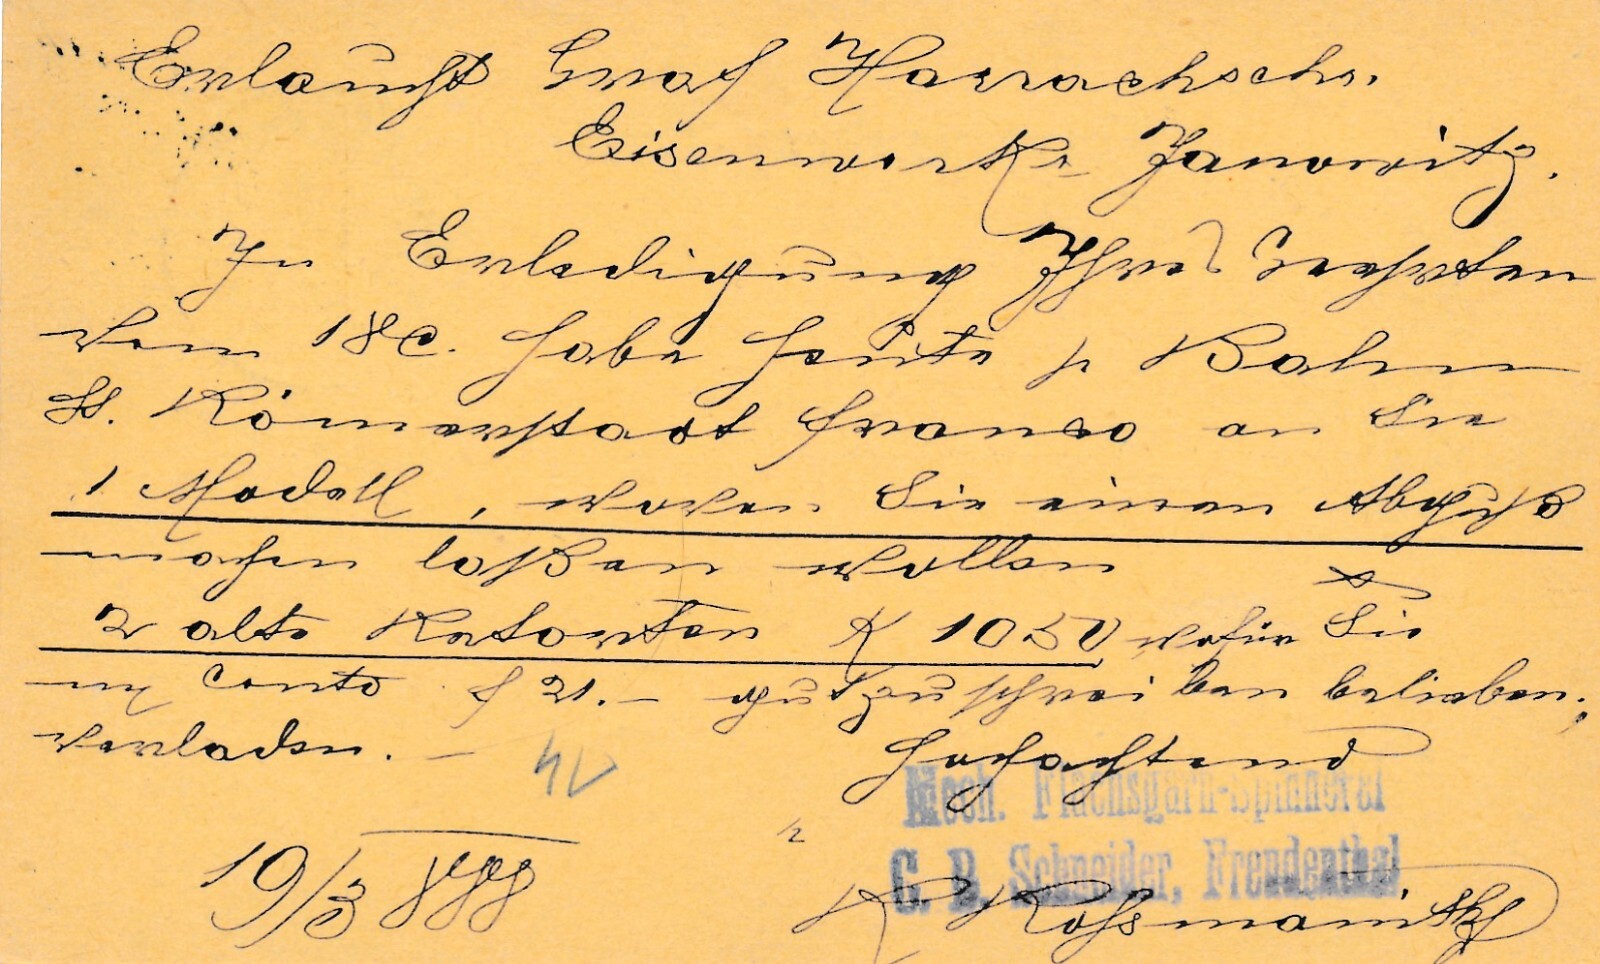 Erlaucht Graf Harrachsche
Eisenwerke Janowitz.
In Erledigung Ihres Geehrten
vom 18 c. habe heute p Bahn
St. Römerstadt franco an Sie
1 Modell, wovon Sie einen Abguß
machen laßen wollen &
2 alte Retorten K 1050 wofür Sie
m/ Conto f 21.– gutzuschreiben belieben,
verladen. –
Hochachtend
Mech. Flachsgarn-Spinnerei
C. B. Schneider, Freudenthal
19/3 888